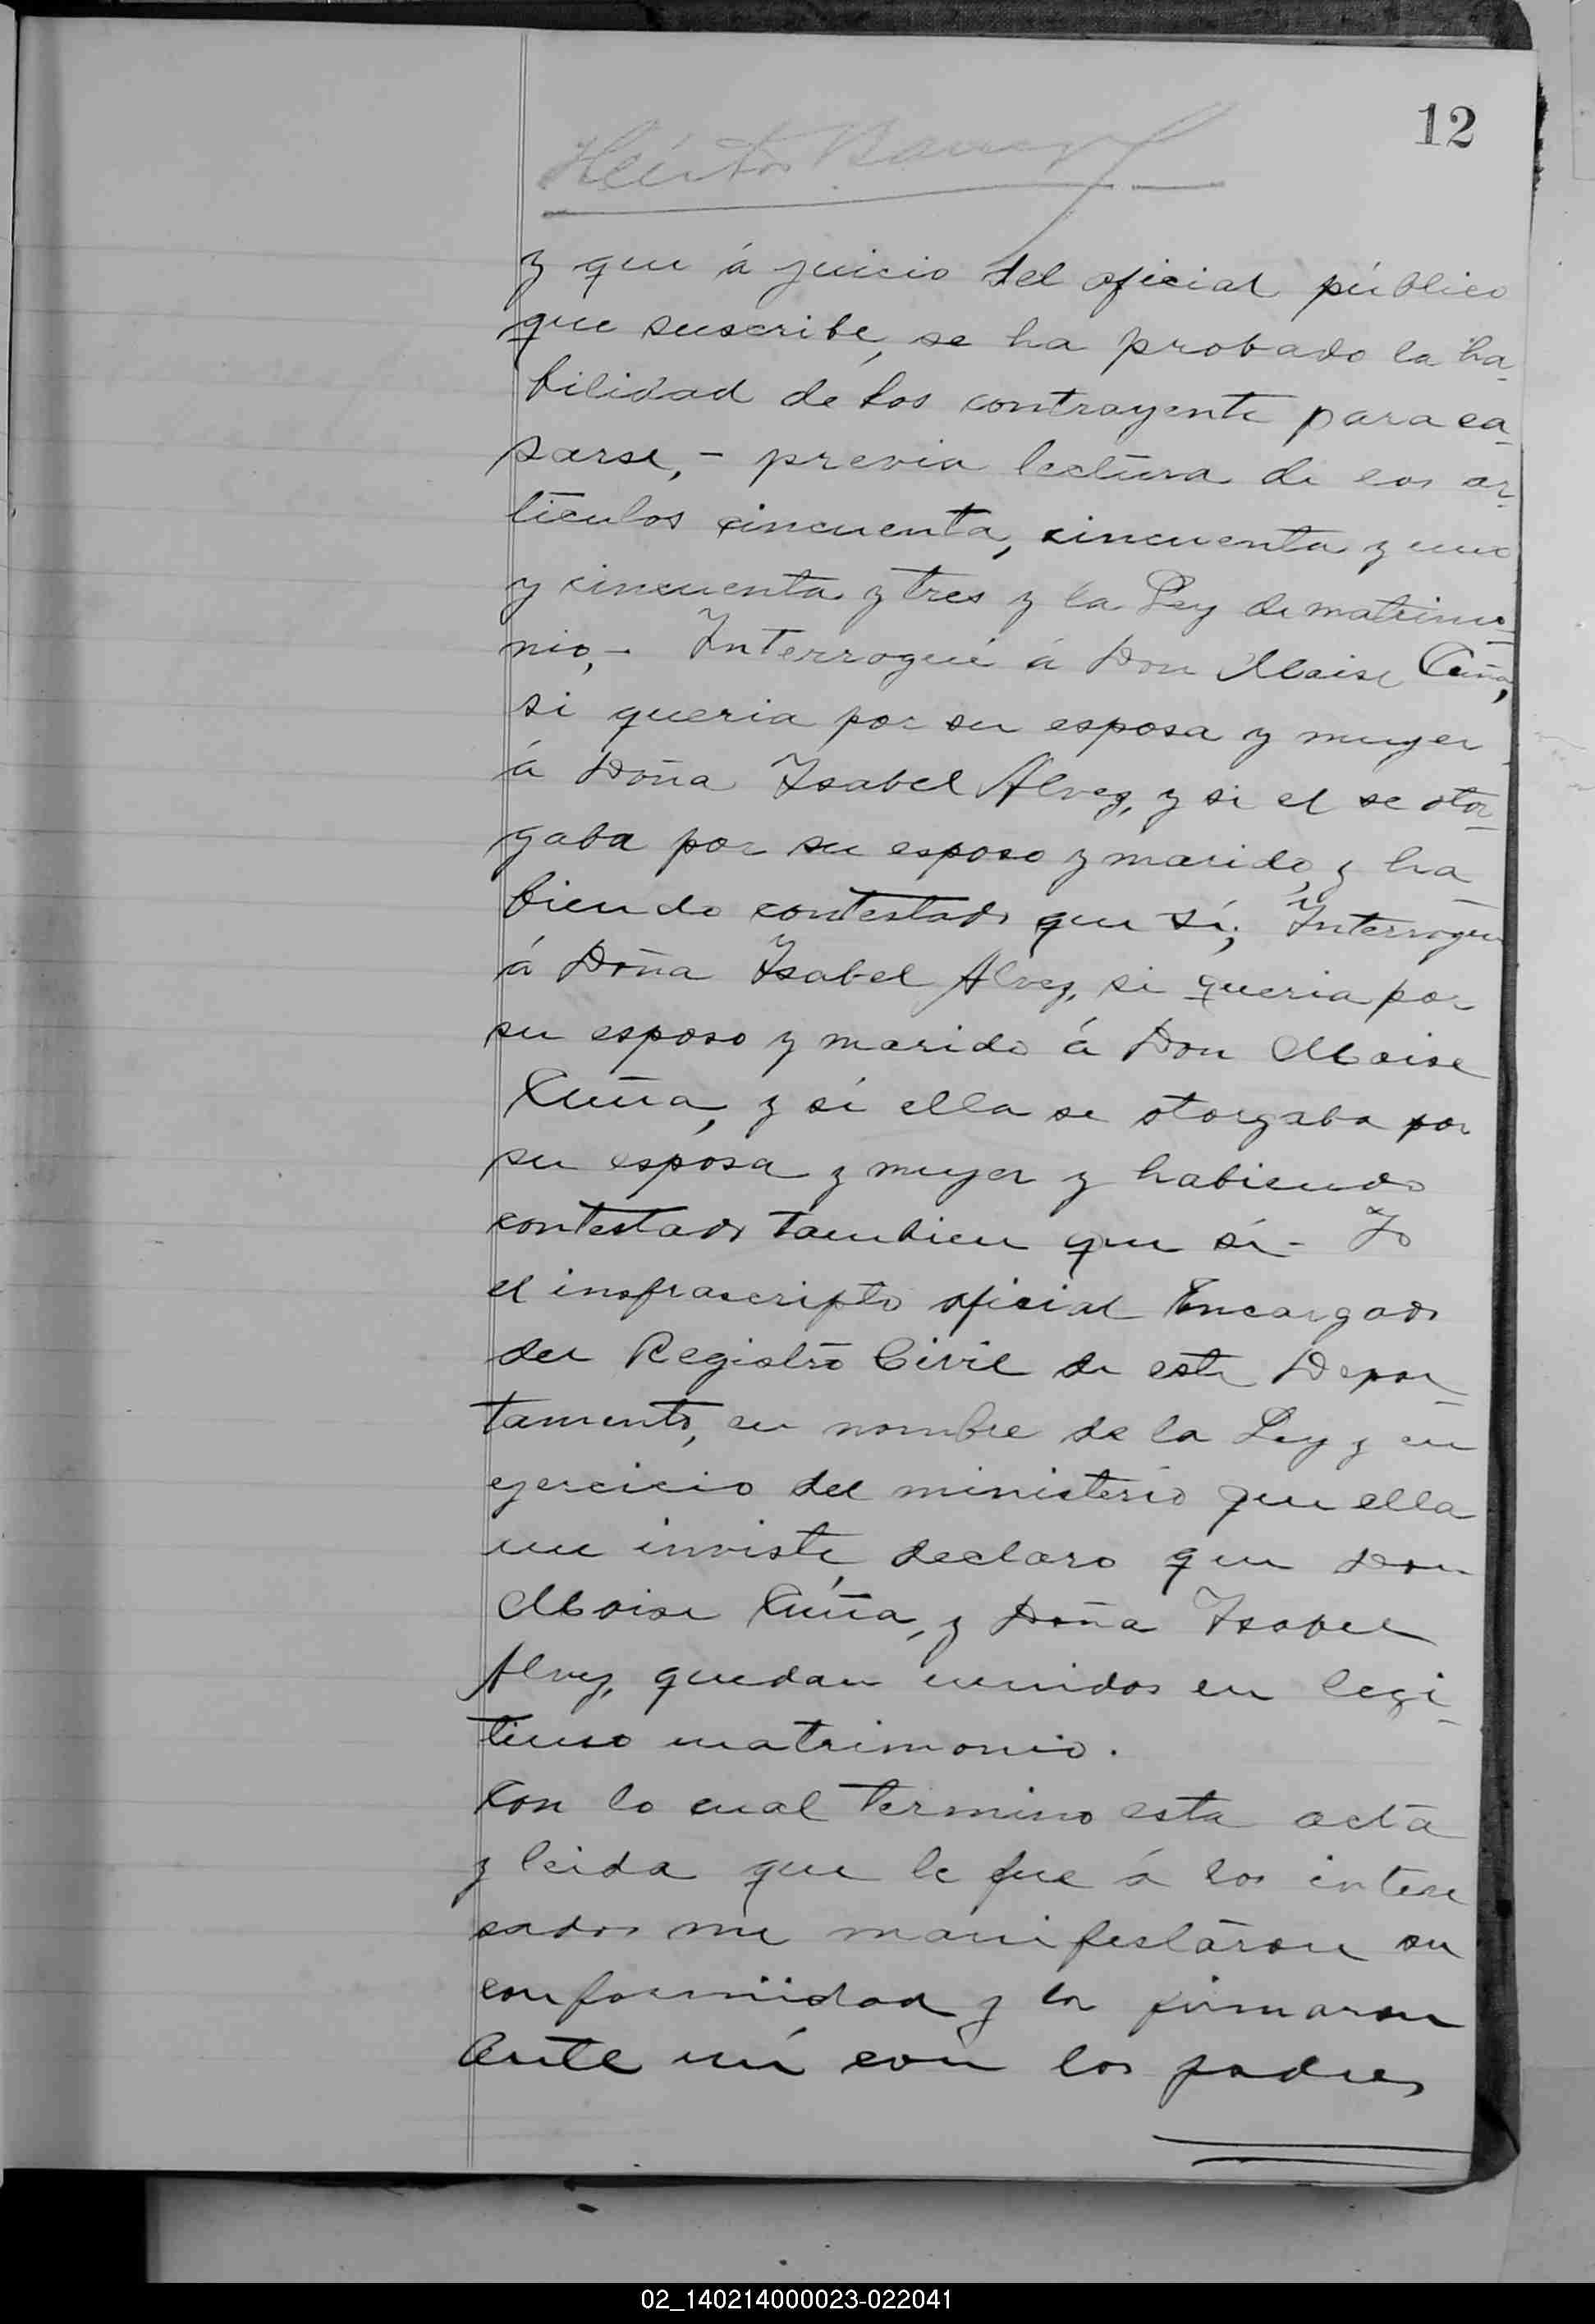 12
y que á juicio del oficial público
que suscribe, se ha probado la ha-
bilidad de los contrayente para ca-
sarse, - previa lectura de los ar-
tículos cincuenta, cincuenta y uno
y cincuenta y tres y la Ley de matrimo-
nio, - Interrogué á Don Moise Cuña,
si queria por su esposa y mujer
á Doña Isabel Alvez, y si el se otor-
gaba por su esposo y marido, y ha-
biendo contestado que sí; Interrogué
á Doña Isabel Alvez, si queria por
su esposo y marido á Don Moise
Cuña, y si ella se otorgaba por
su esposa y mujer y habiendo
contestado tambien que sí - Yo
el insfrascripto oficial Encargado
del Registro Civil de este Depar-
tamento, en nombre de la Ley y en
ejercicio del ministerio que ella
me inviste, declaro que Don
Moise Cuña, y Doña Isabel
Alvez, quedan unidos en legi-
timo matrimonio.
Con lo cual termino esta acta
y leida que le fue á los intere
sados me manifestaron su
conformidad y la firmaron
Ante mí con los padres
02_140214000023-022041